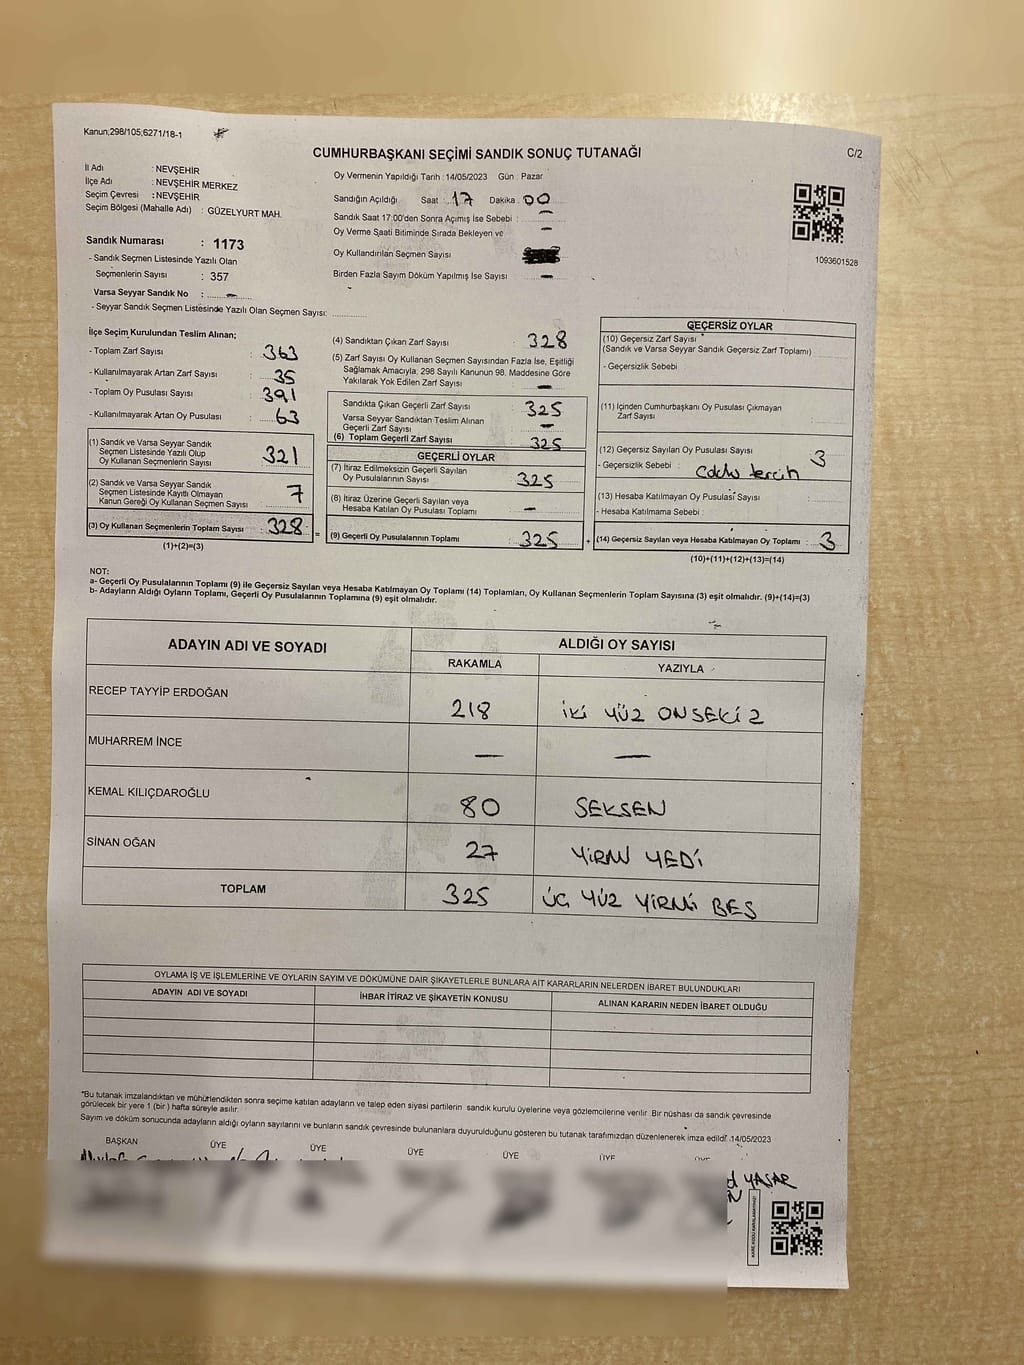 Kanun;298/105;6271/18-1
CUMHURBAŞKANI SEÇİMİ SANDIK SONUÇ TUTANAĞI
C/2
İl Adı : NEVŞEHİR
İlçe Adı : NEVŞEHİR MERKEZ
Seçim Çevresi : NEVŞEHİR
Seçim Bölgesi (Mahalle Adı) : GÜZELYURT MAH.
Sandık Numarası : 1173
- Sandık Seçmen Listesinde Yazılı Olan
Seçmenlerin Sayısı : 357
Varsa Seyyar Sandık No : -
- Seyyar Sandık Seçmen Listesinde Yazılı Olan Seçmen Sayısı:
Oy Vermenin Yapıldığı Tarih : 14/05/2023 Gün : Pazar
Sandığın Açıldığı Saat : 17 Dakika : 00
Sandık Saat 17:00'den Sonra Açımış İse Sebebi : -
Oy Verme Saati Bitiminde Sırada Bekleyen ve -
Oy Kullandırılan Seçmen Sayısı
Birden Fazla Sayım Döküm Yapılmış İse Sayısı -
1093601528
İlçe Seçim Kurulundan Teslim Alınan;
- Toplam Zarf Sayısı : 363
- Kullanılmayarak Artan Zarf Sayısı : 35
- Toplam Oy Pusulası Sayısı : 391
- Kullanılmayarak Artan Oy Pusulası : 63
(1) Sandık ve Varsa Seyyar Sandık
Seçmen Listesinde Yazılı Olup
Oy Kullanan Seçmenlerin Sayısı 321
(2) Sandık ve Varsa Seyyar Sandık
Seçmen Listesinde Kayıtlı Olmayan
Kanun Gereği Oy Kullanan Seçmen Sayısı 7
(3) Oy Kullanan Seçmenlerin Toplam Sayısı : 328
(1)+(2)=(3)
(4) Sandıktan Çıkan Zarf Sayısı : 328
(5) Zarf Sayısı Oy Kullanan Seçmen Sayısından Fazla İse, Eşitliği
Sağlamak Amacıyla; 298 Sayılı Kanunun 98. Maddesine Göre
Yakılarak Yok Edilen Zarf Sayısı : -
Sandıkta Çıkan Geçerli Zarf Sayısı : 325
Varsa Seyyar Sandıktan Teslim Alınan
Geçerli Zarf Sayısı : -
(6) Toplam Geçerli Zarf Sayısı 325
GEÇERLİ OYLAR
(7) İtiraz Edilmeksizin Geçerli Sayılan
Oy Pusulalarının Sayısı : 325
(8) İtiraz Üzerine Geçerli Sayılan veya
Hesaba Katılan Oy Pusulası Toplamı : -
= (9) Geçerli Oy Pusulalarının Toplamı : 325 +
GEÇERSİZ OYLAR
(10) Geçersiz Zarf Sayısı
(Sandık ve Varsa Seyyar Sandık Geçersiz Zarf Toplamı)
- Geçersizlik Sebebi :
(11) İçinden Cumhurbaşkanı Oy Pusulası Çıkmayan
Zarf Sayısı
(12) Geçersiz Sayılan Oy Pusulası Sayısı 3
- Geçersizlik Sebebi : Çoklu tercih
(13) Hesaba Katılmayan Oy Pusulası Sayısı
- Hesaba Katılmama Sebebi :
(14) Geçersiz Sayılan veya Hesaba Katılmayan Oy Toplamı : 3
(10)+(11)+(12)+(13)=(14)
NOT:
a- Geçerli Oy Pusulalarının Toplamı (9) ile Geçersiz Sayılan veya Hesaba Katılmayan Oy Toplamı (14) Toplamları, Oy Kullanan Seçmenlerin Toplam Sayısına (3) eşit olmalıdır. (9)+(14)=(3)
b- Adayların Aldığı Oyların Toplamı, Geçerli Oy Pusulalarının Toplamına (9) eşit olmalıdır.
ADAYIN ADI VE SOYADI ALDIĞI OY SAYISI
RAKAMLA YAZIYLA
RECEP TAYYİP ERDOĞAN 218 İKİ YÜZ ONSEKİZ
MUHARREM İNCE - -
KEMAL KILIÇDAROĞLU 80 SEKSEN
SİNAN OĞAN 27 YİRMİ YEDİ
TOPLAM 325 ÜÇ YÜZ YİRMİ BEŞ
OYLAMA İŞ VE İŞLEMLERİNE VE OYLARIN SAYIM VE DÖKÜMÜNE DAİR ŞİKAYETLERLE BUNLARA AİT KARARLARIN NELERDEN İBARET BULUNDUKLARI
ADAYIN ADI VE SOYADI İHBAR İTİRAZ VE ŞİKAYETİN KONUSU ALINAN KARARIN NEDEN İBARET OLDUĞU
*Bu tutanak imzalandıktan ve mühürlendikten sonra seçime katılan adayların ve talep eden siyasi partilerin sandık kurulu üyelerine veya gözlemcilerine verilir .Bir nüshası da sandık çevresinde
görülecek bir yere 1 (bir ) hafta süreyle asılır.
Sayım ve döküm sonucunda adayların aldığı oyların sayılarını ve bunların sandık çevresinde bulunanlara duyurulduğunu gösteren bu tutanak tarafımızdan düzenlenerek imza edildi .14/05/2023
BAŞKAN ÜYE ÜYE ÜYE ÜYE ÜYE
YAŞAR